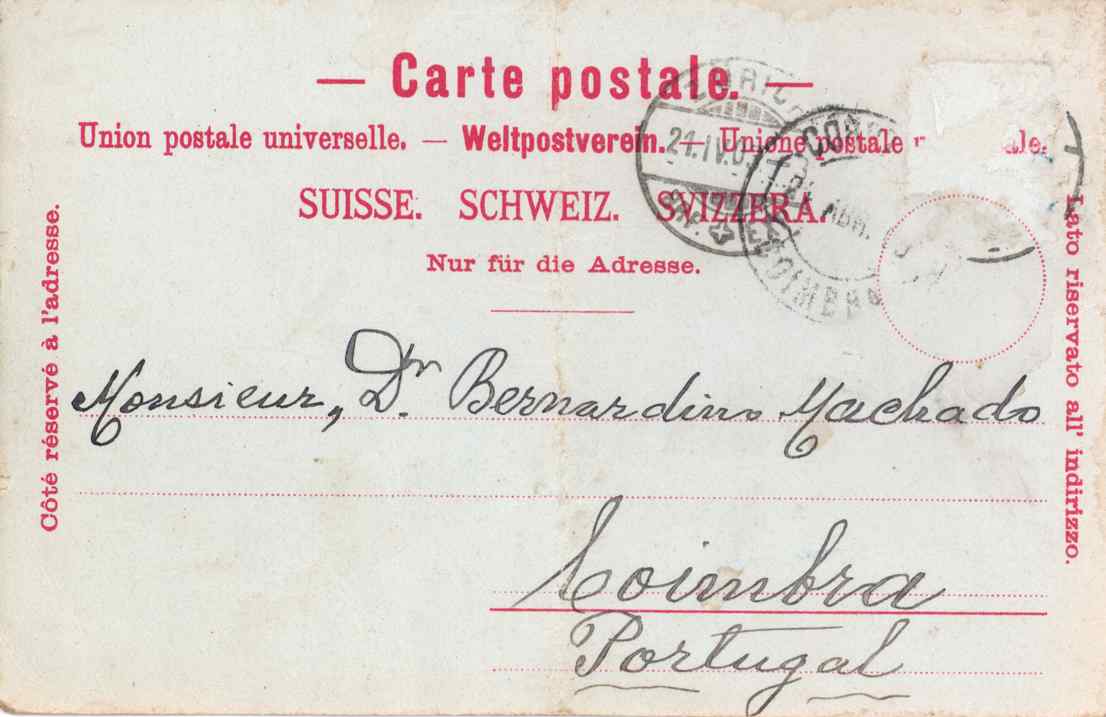 — Carte postale. —
Union postale universelle. — Weltpostverein. — Unione postale
SUISSE. SCHWEIZ. SVIZZERA.
Nur für die Adresse.
Côté réservé à l'adresse.
Lato riservato all' indirizzo.
21.IV.0
COIMBRA
Monsieur, Dr. Bernardino Machado
Coimbra
Portugal